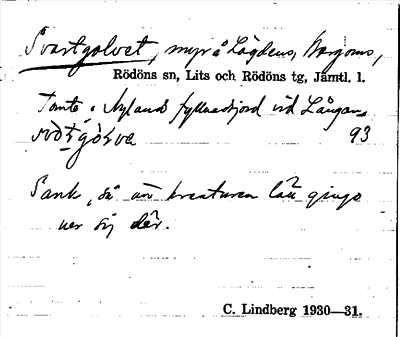 Svartgolvet, myr å Lägdens, Vargoms,
Rödöns sn, Lits och Rödöns tg, Jämtl. l.
Tomte i Nylands fyllnadsjord vid Långan
93
Sank, så att kreaturen lätt gingo
ner sig där.
C. Lindberg 1930—31.